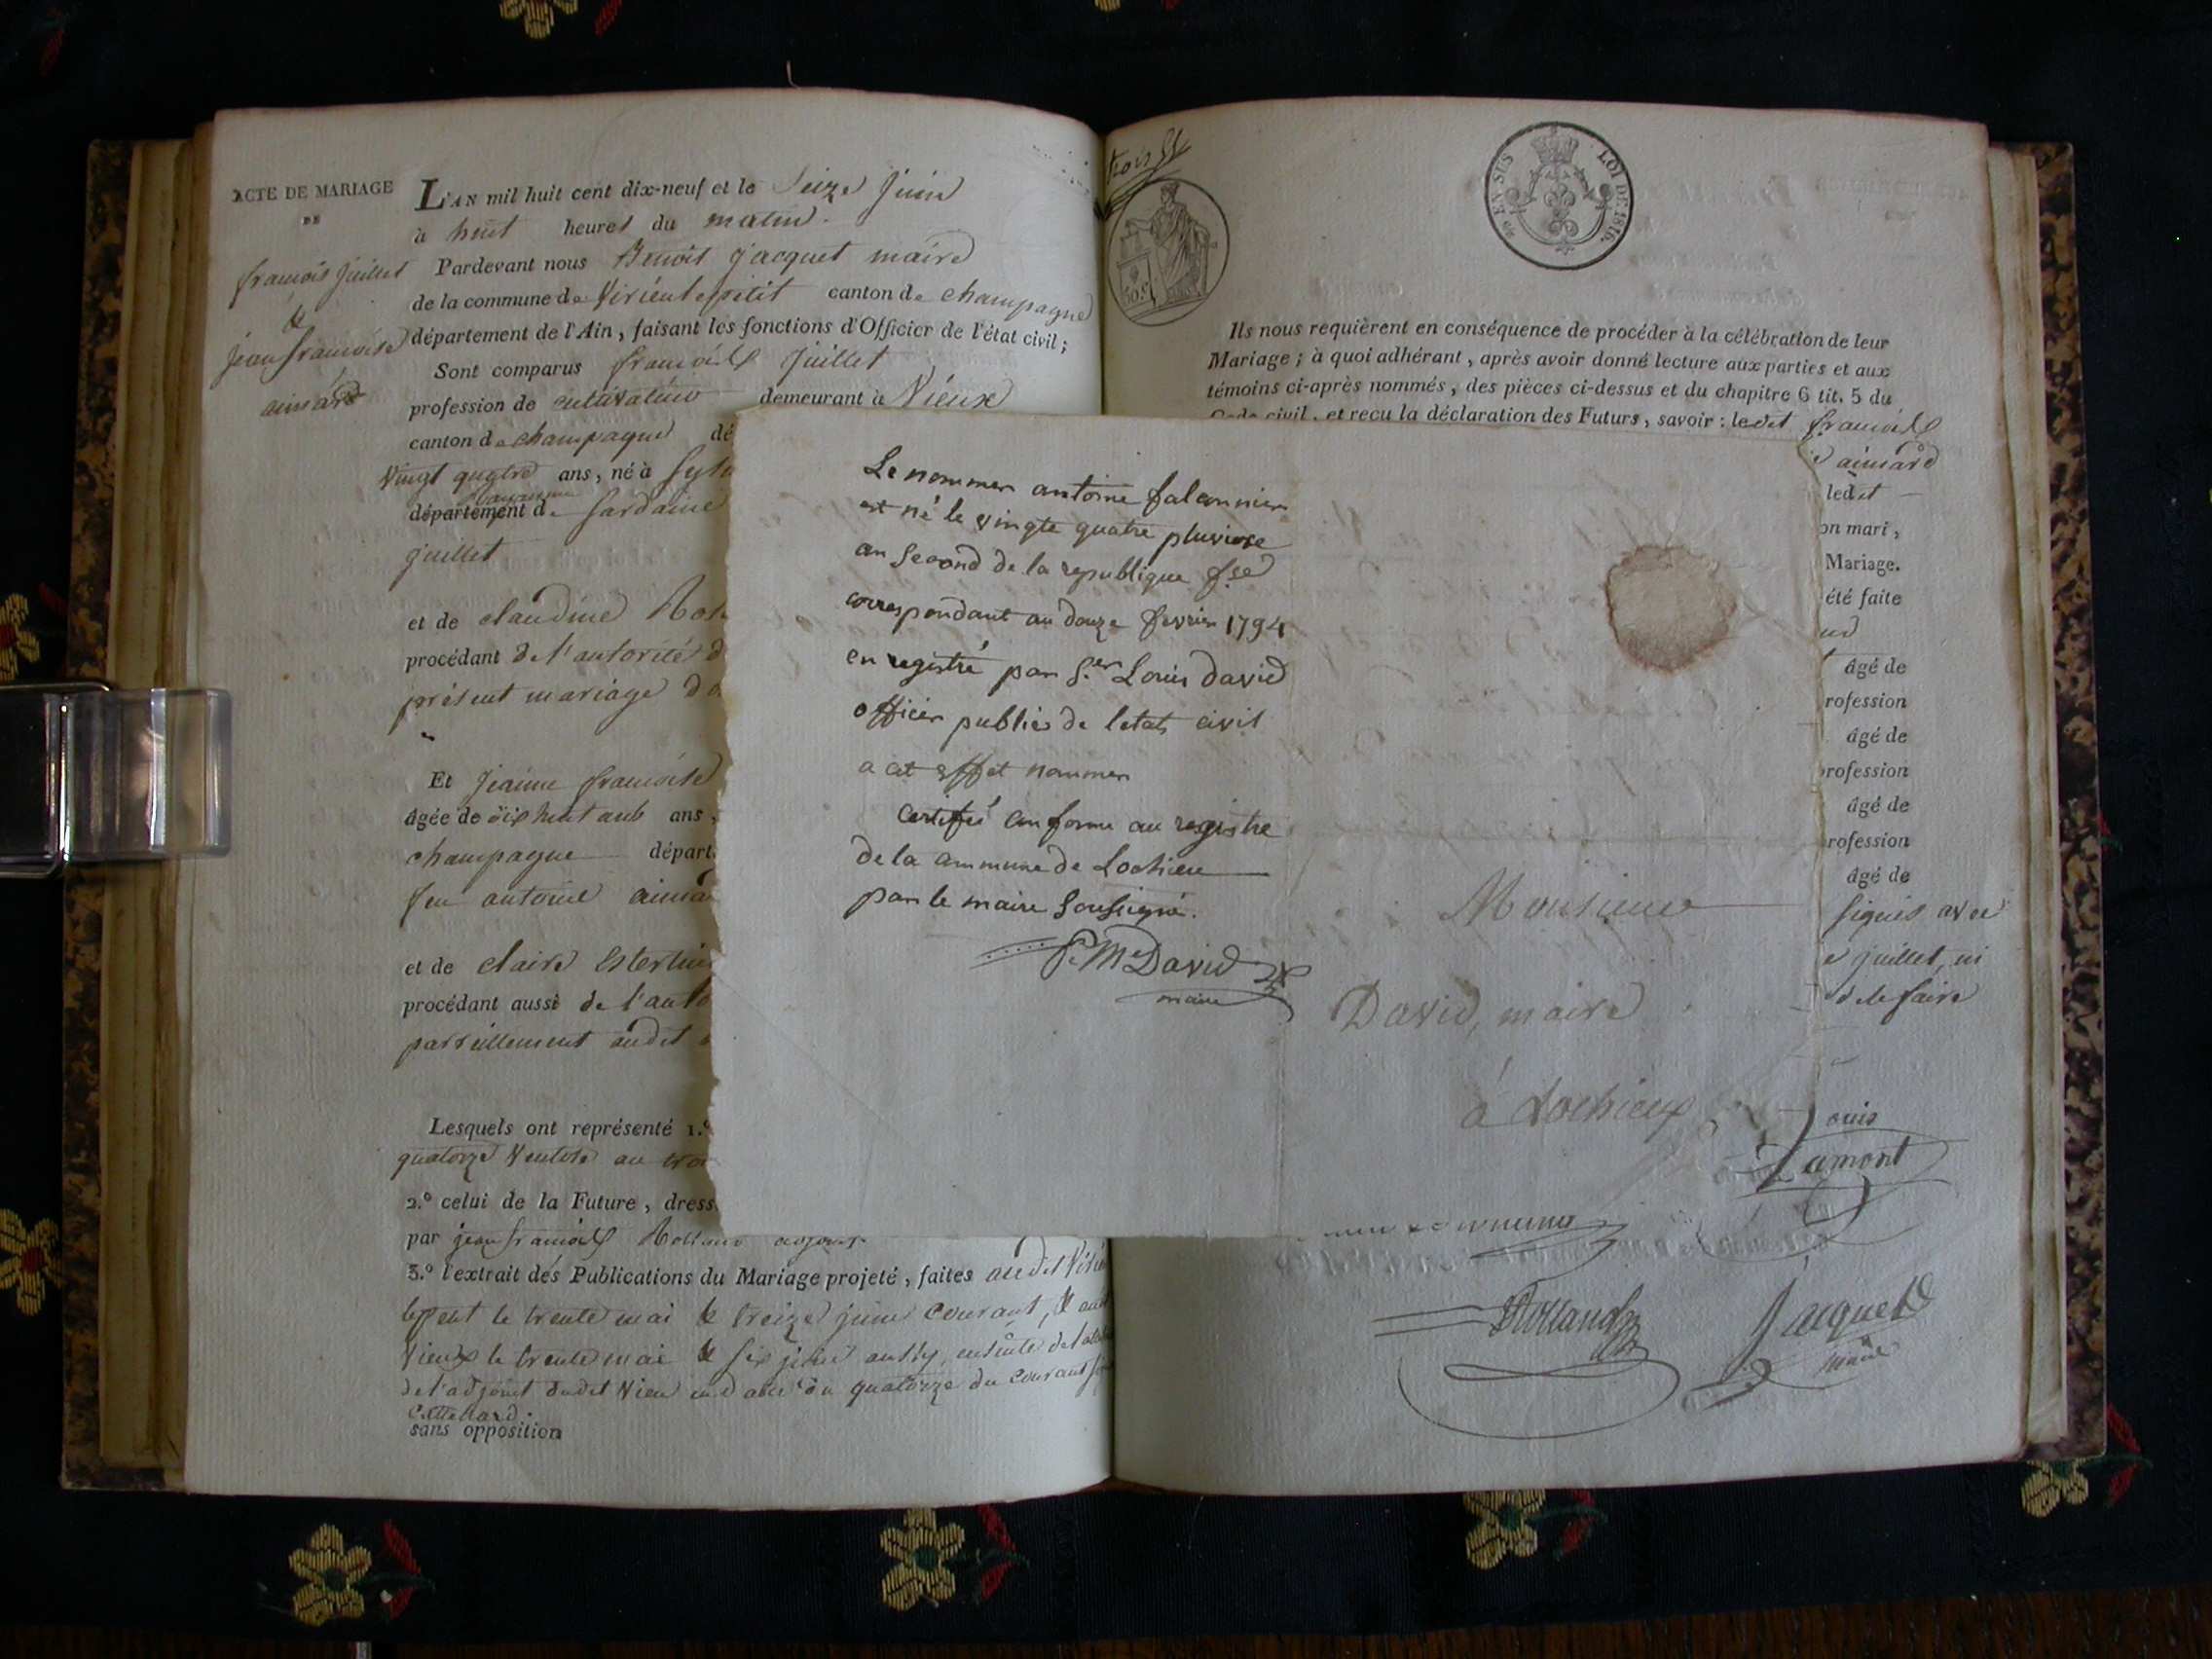 ACTE DE MARIAGE
DE
françois juillet
&
jean françoise
aimard
L'AN mil huit cent dix-neuf et le Seize juin
à huit heures du matin.
Pardevant nous Benoit jacquet maire
de la commune de Virieulepetit canton de champagne
département de l'Ain, faisant les fonctions d'Officier de l'état civil;
Sont comparus françois juillet
profession de cultivateur demeurant à Vieux
canton de champagne dé
Vingt quatre ans, né à
département de Sardaine
juillet
et de claudine
procédant de l'autorité d
présent mariage
Et jeanne françoise
âgée de dix huit ans ans,
champagne départ
feu antoine aima
et de claire
procédant aussi de l'auto
pareillement audit
Lesquels ont représenté 1.º
quatorze Ventose an
2.º celui de la Future, dress
par jean françois
3.º l'extrait des Publications du Mariage projeté, faites audit
lepetit le trente mai & treize juin courant, &
Vieux le trente mai & six juin
de l'adjoint dudit Vieu en date du quatorze du courant
sans opposition
trois
50 c.
LOI DE 1816.
Ils nous requièrent en conséquence de procéder à la célébration de leur
Mariage; à quoi adhérant, après avoir donné lecture aux parties et aux
témoins ci-après nommés, des pièces ci-dessus et du chapitre 6 tit. 5 du
Code civil, et reçu la déclaration des Futurs, savoir: ledit françois
aimard
ledit
on mari,
Mariage.
été faite
âgé de
rofession
âgé de
profession
âgé de
rofession
âgé de
signés avec
juillet, ni
de le faire
Le nommer antoine falconnier
est né le vingte quatre pluviose
an second de la republique fse
correspondant au douze fevrier 1794
enregistré par S.er Louis David
officier publics de letat civil
a cet effet nommer
Certifié conforme au registre
de la commune de Lochieu
par le maire Soussigné.
P. M David
maire
Monsieur
David, maire
à Lochieux
ouis
Lamont
Rolland
Jacquet
maire